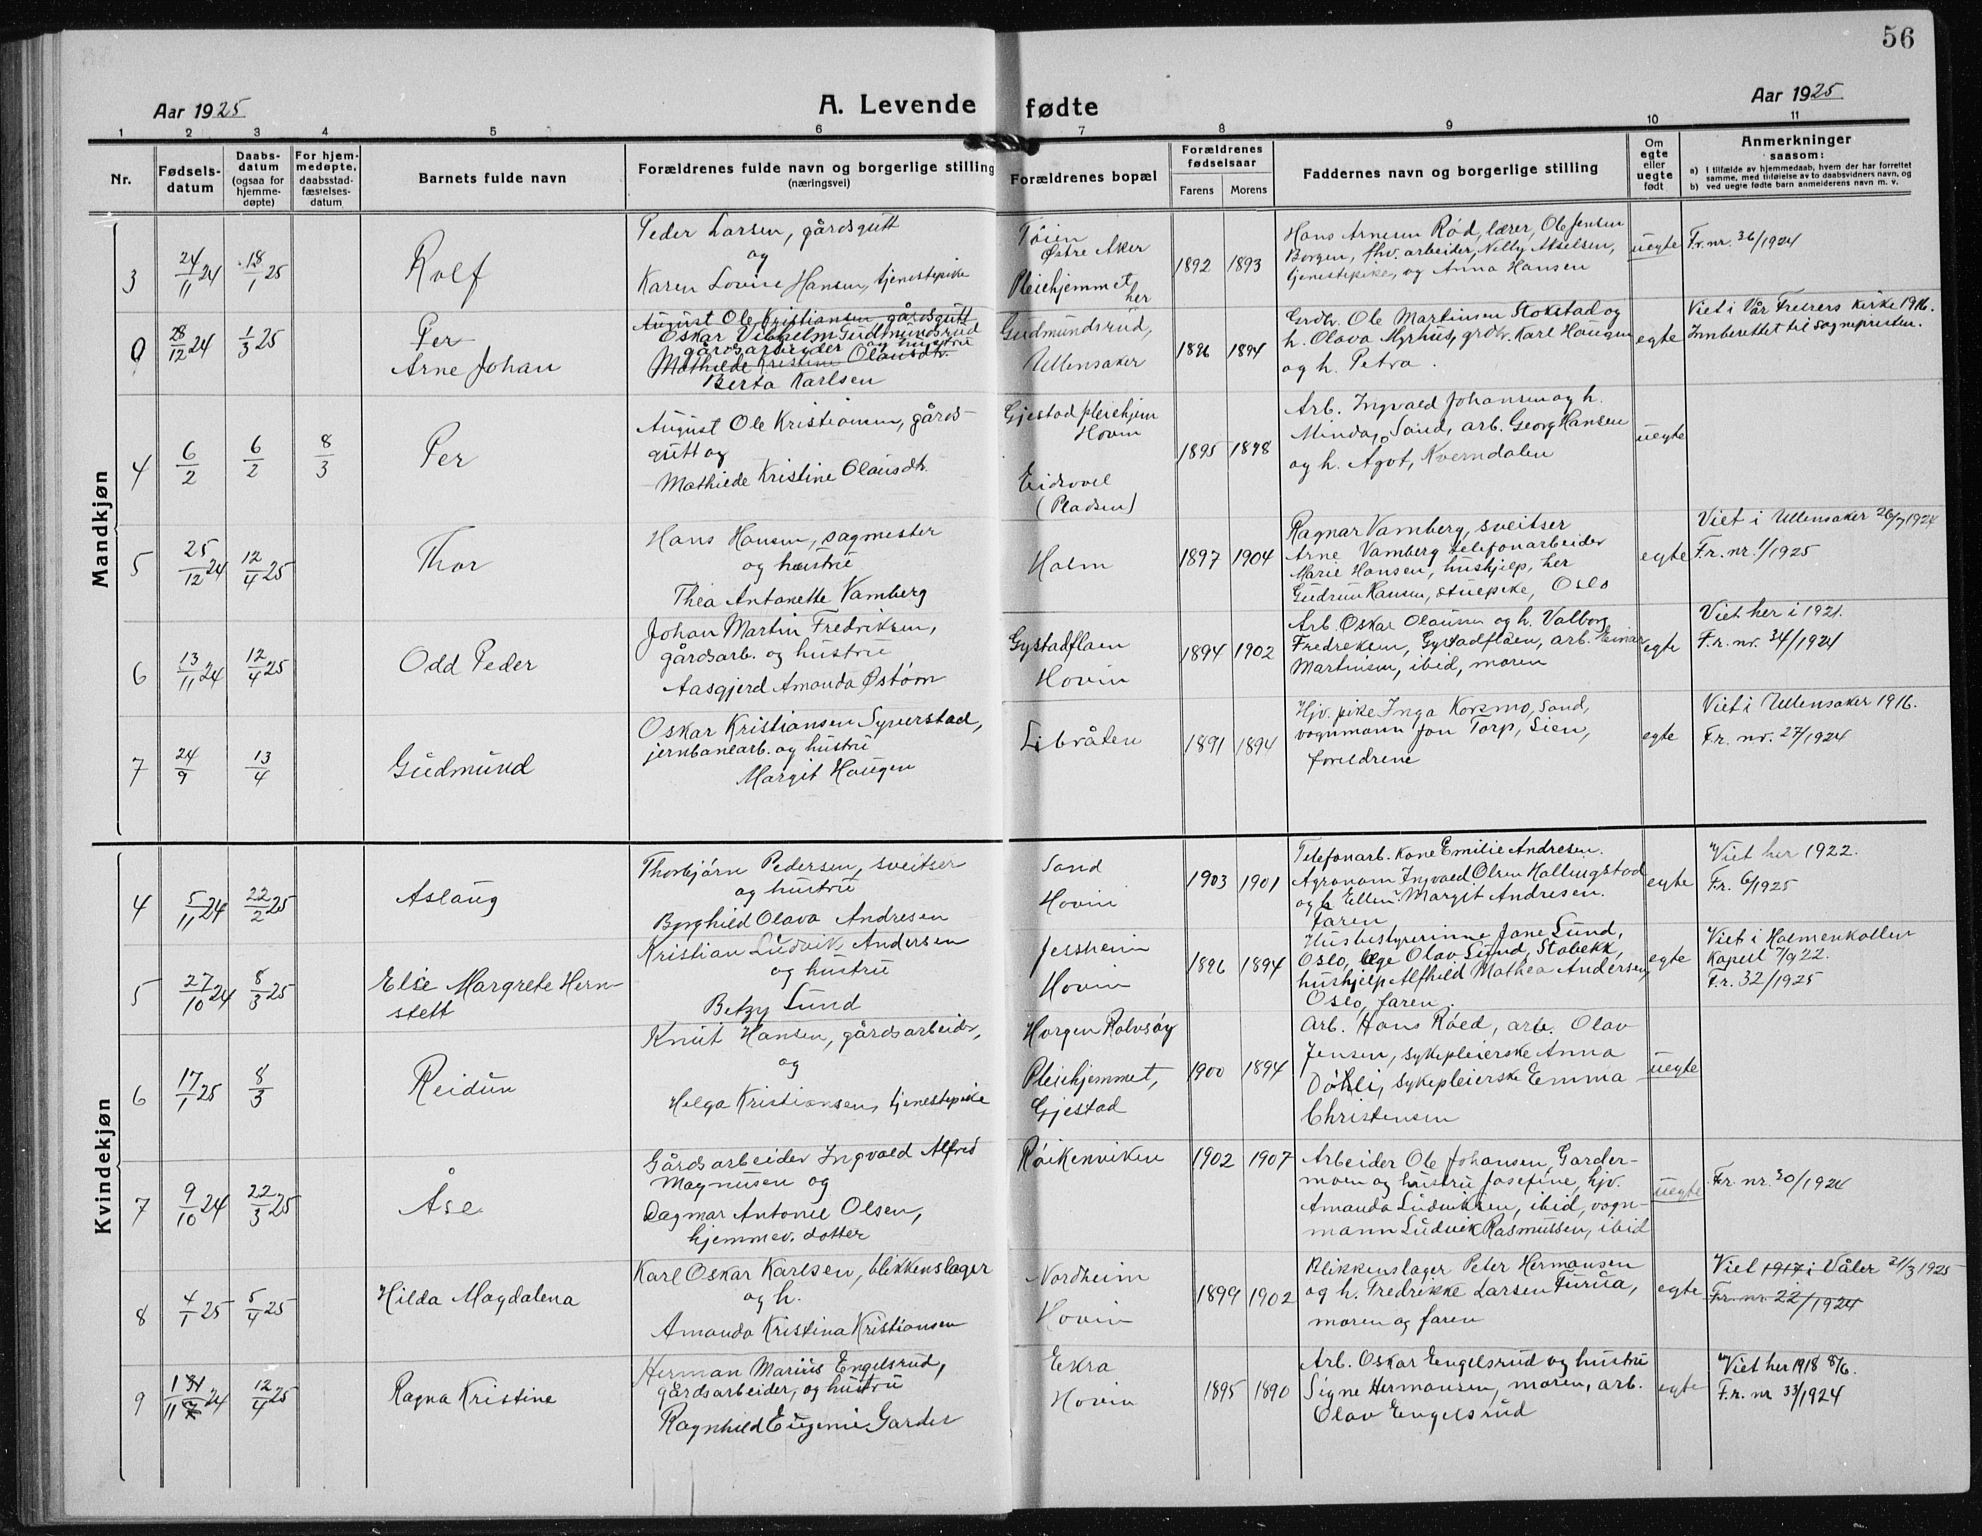 56
Aar 1925
A. Levende fødte
Aar 1925
1 2 3 4 5 6 7 8 9 10 11
Nr.
Fødsels-
datum
Daabs-
datum
(ogsaa for
hjemme-
døpte)
For hjem-
medøpte,
daabsstad-
fæstelses-
datum
Barnets fulde navn
Forældrenes fulde navn og borgerlige stilling
(næringsvei)
Forældrenes bopæl
Forældrenes
fødselsaar
Farens Morens
Faddernes navn og borgerlig stilling
Om
egte
eller
uegte
født
Anmerkninger
saasom:
a) I tilfælde av hjemmedaab, hvem der har forrettet
samme, med tilføielse av to daabsvidners navn, og
b) ved uegte fødte barn anmelderens navn m. v.
Mandkjøn
3
24/11 24
18/1 25
Rolf
Peder Larsen, gårdsgutt
og
Karen Lovise Hansen, tjenestepike
Tøien
Østre Aker
Pleiehjemmet
her
1892 1893
Hans Arnesen Rød, lærer, Ole Jensen
Borgen, fhv. arbeider, Nelly Akselsen,
tjenestepike, og Anna Hansen
uegte
Fr. nr. 36/1924
0
28/12 24
1/3 25
Per
Arne Johan
August Ole Kristiansen gårdsgutt
Oskar Vilhelm Gudmundsrud
gårdsarbeider og hustru
Mathilde Kristine Olausdtr.
Berta Karlsen
Gudmundsrud,
Ullensaker
1896 1894
Grdbr. Ole Martinsen Stokstad og
h. Olava Myrhus, grdbr. Karl Haugen
og h. Petra.
egte
Viet i Vår Frelsers kirke 1916.
Innberettet til sognepresten.
4
6/2
6/2
8/3
Per
August Ole Kristiansen, gårds-
gutt og
Mathilde Kristine Olausdtr.
Gjestad pleiehjem
Hovin
Eidsvoll
(Pladsen)
1895 1898
Arb. Ingvald Johansen og h.
Minda, Sand, arb. Georg Hansen
og h. Agot, Kverndalen
uegte
5
25/12 24
12/4 25
Thor
Hans Hansen, sagmester
og hustru
Thea Antonette Vamberg
Holm
1897 1904
Ragnar Vamberg, sveitser
Arne Vamberg telefonarbeider
Marie Hansen, hushjelp, her
Gudrun Hansen, stuepike, Oslo
egte
Viet i Ullensaker 26/7 1924
Fr. nr. 1/1925
6
13/11 24
12/4 25
Odd Peder
Johan Martin Fredriksen,
gårdsarb. og hustru
Aasgjerd Amanda Østörn
Gystadflaen
Hovin
1894 1902
Arb. Oskar Olausen og h. Valborg
Fredriksen, Gystadflåen, arb. Einar
Martinsen, ibid, moren
egte
Viet her i 1921.
Fr. nr. 34/1924
7
24/9
13/4
Gudmund
Oskar Kristiansen Syverstad,
jernbanearb. og hustru
Margit Haugen
Libråten
1891 1894
Hjv. pike Inga Korsmo, Sand,
vognmann Jon Torp, Lien,
foreldrene
egte
Viet i Ullensaker 1916.
Fr. nr. 27/1924
Kvindekjøn
4
5/11 24
22/2 25
Aslaug
Thorbjörn Pedersen, sveitser
og hustru
Borghild Olava Andresen
Sand
Hovin
1903 1901
Telefonarb. kone Emilie Andresen.
Agronom Ingvald Olsen Hallingstad
og h. Ellen. Margit Andresen.
Faren
egte
Viet her 1922.
Fr. 6/1925
5
27/10 24
8/3 25
Else Margrete Hern-
stett
Kristian Ludvik Andersen
og hustru
Betzy Lund
Jessheim
Hovin
1896 1894
Husbestyrerinne Jane Lund,
Oslo, læge Olav Lund, Stabekk,
hushjelp Alfhild Mathea Andersen,
Oslo, faren.
egte
Viet i Holmenkollen
kapell 7/9 22.
Fr. 32/1925
6
17/1 25
8/3
Reidun
Knut Hansen, gårdsarbeider,
og
Helga Kristiansen, tjenestepike
Horgen Rolvsøy
Pleiehjemmet,
Gjestad
1900 1894
Arb. Hans Røed, arb. Olav
Jensen, sykepleierske Anna
Döhli, sykepleierske Emma
Christensen
uegte
7
9/10 24
22/3 25
Åse
Gårdsarbeider Ingvald Alfred
Magnusen og
Dagmar Antonie Olsen,
hjemmev. dotter
Røikenviken
1902 1907
Arbeider Ole Johansen, Garder-
moen og hustru Josefine, hjv.
Amanda Ludviksen, ibid, vogn-
mann Ludvik Rasmussen, ibid
uegte
Fr. nr. 30/1924
8
4/1 25
5/4 25
Hilda Magdalena
Karl Oskar Karlsen, blikkenslager
og h.
Amanda Kristina Kristiansen
Nordheim
Hovin
1899 1902
Blikkenslager Peter Hermansen
og h. Fredrikke Larsen Furua,
moren og faren
egte
Viet 1917 i Våler 21/3 1925
Fr. nr. 22/1924
9
24
12/4 25
Ragna Kristine
Herman Marius Engelsrud,
gårdsarbeider, og hustru
Ragnhild Eugenie Garder
Ekra
Hovin
1895 1890
Arb. Oskar Engelsrud og hustru
Signe Hermansen, moren, arb.
Olav Engelsrud
egte
Viet her 1918 8/6.
Fr. nr 33/1924